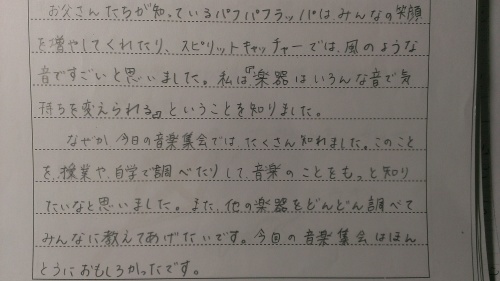 お父さんたちが知っているパフパフラッパはみんなの笑顔
を増やしてくれたり、スピリットキャッチャーでは、風のような
音ですごいと思いました。私は『楽器はいろんな音で気
持ちを変えられる』ということを知りました。
なぜか今日の音楽集会では、たくさん知れました。このこと
を授業や、自学で調べたりして、音楽のことをもっと知り
たいなと思いました。また、他の楽器をどんどん調べて
みんなに教えてあげたいです。今回の音楽集会はほん
とうにおもしろかったです。